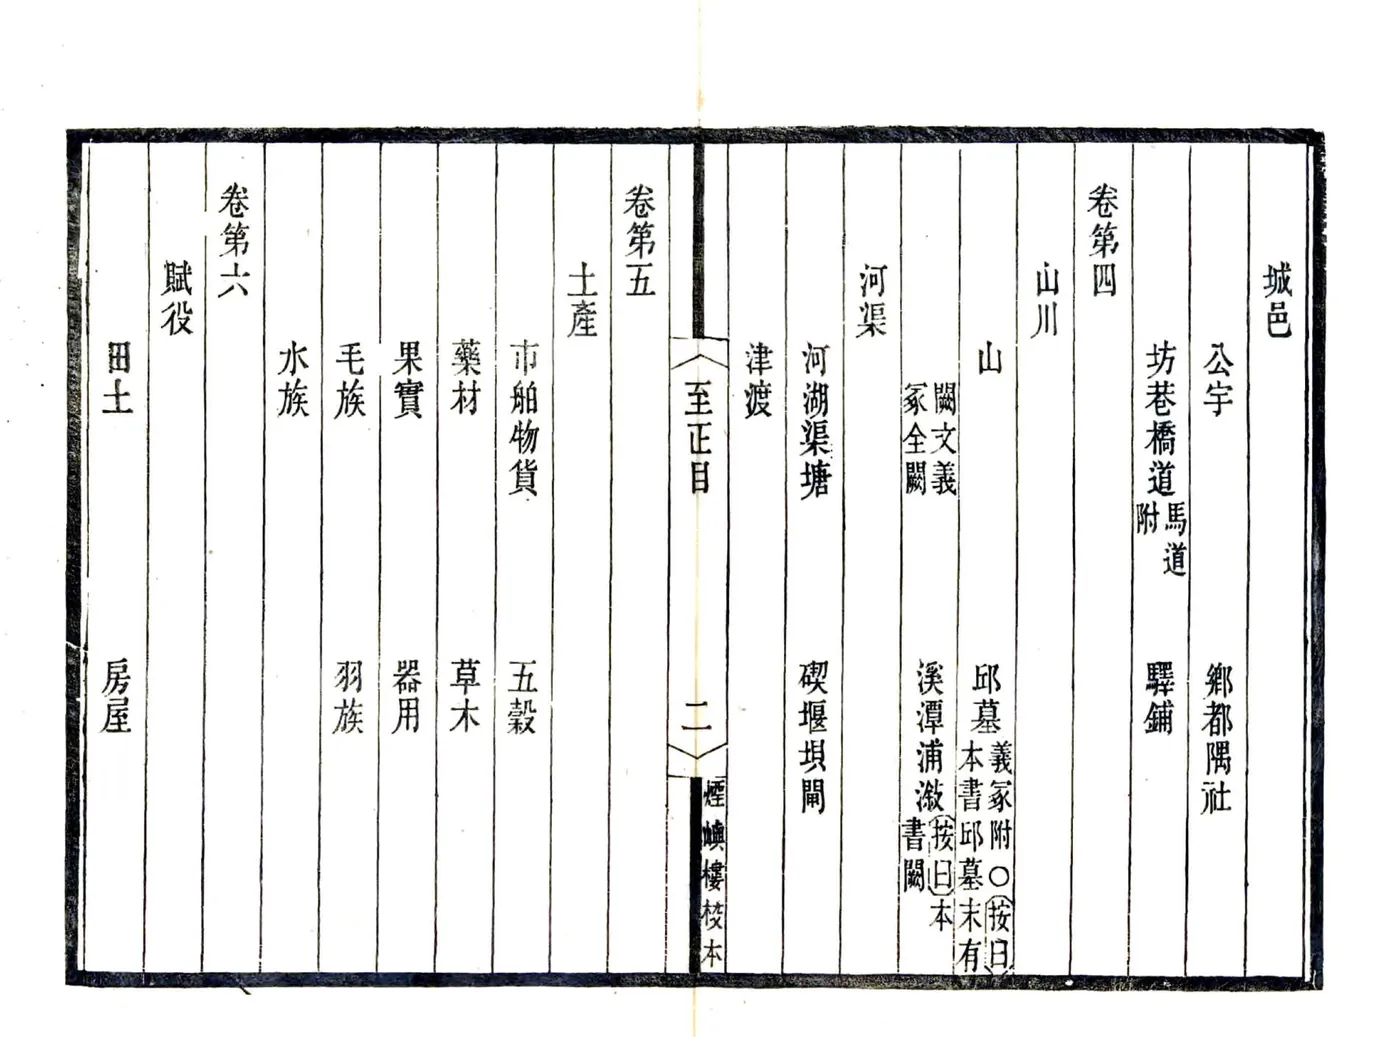 城邑
公宇　鄉都隅社
坊巷橋道馬道附　驛鋪
卷第四
山川
山　邱墓義冢附○按曰本書邱墓末有
闕文義冢全闕　溪潭浦漵按曰本書闕
河渠
河湖渠塘　碶堰埧閘
津渡
至正目　二　煙嶼樓校本
卷第五
土產
市舶物貨　五穀
藥材　草木
果實　器用
毛族　羽族
水族
卷第六
賦役
田土　房屋